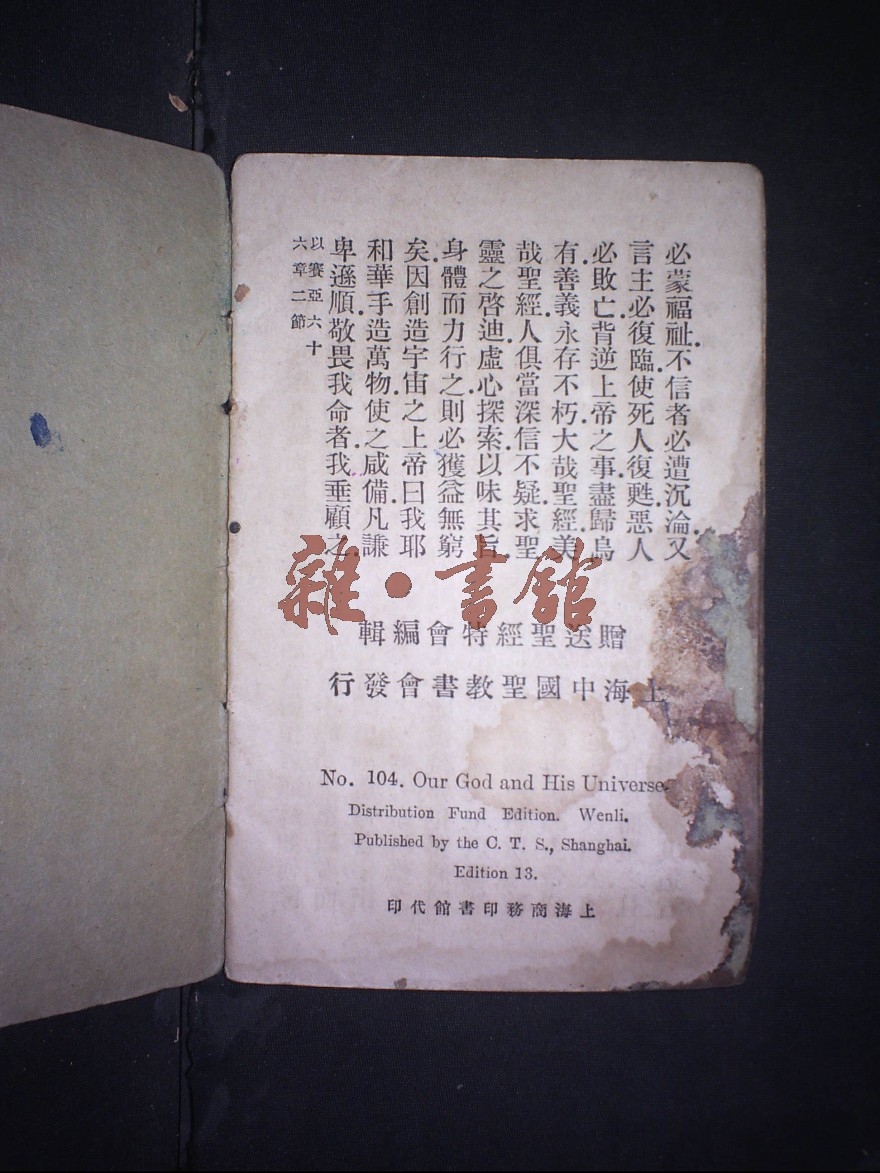 必蒙福祉．不信者必遭沉淪．又
言主必復臨．使死人復甦．惡人
必敗亡．背逆上帝之事．盡歸烏
有．善義永存不朽．大哉聖經．美
哉聖經．人俱當深信不疑．求聖
靈之啓迪．虛心探索．以味其旨．
身體而力行之．則必獲益無窮
矣．因創造宇宙之上帝曰．我耶
和華手造萬物．使之咸備．凡謙
卑遜順．敬畏我命者．我垂顧之．
以賽亞六十
六章二節
贈送聖經特會編輯
上海中國聖教書會發行
No. 104. Our God and His Universe.
Distribution Fund Edition. Wenli.
Published by the C. T. S., Shanghai.
Edition 13.
上海商務印書館代印
雜·書館